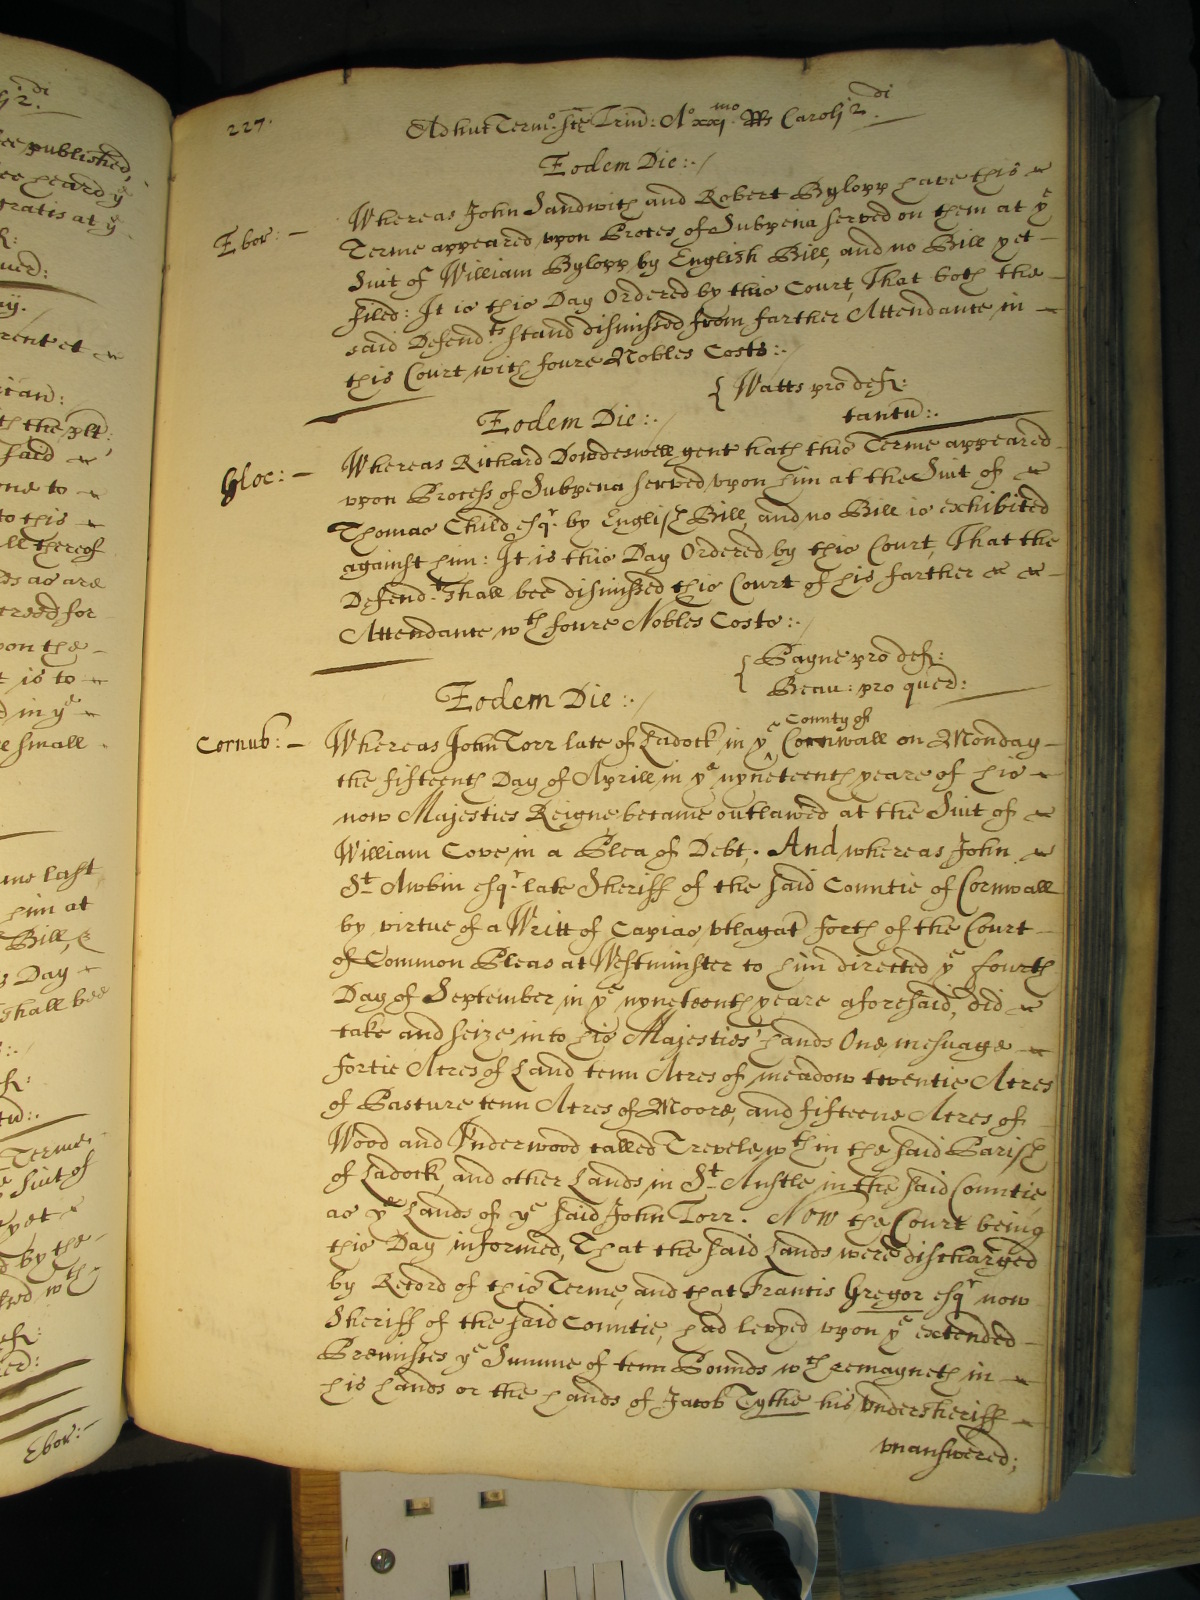 di
j 2.
ee published,
ee heard yͤ
gratis at yͤ
uer:
rent et
th the plt:
said
one to
to this
all thereof
as are
creed for
pon the
t is to
d in yͤ
e small
me last
him at
Bill, &
s Day
shall bee
Terme.
e Suit of
yet
d by the
wth
Ebor:
227.
Adhuc Termo. Ste Trin: Ao xximo RRs Carolj 2di.
Eodem Die:./
Ebor: Whereas John Sandwith and Robert Bylopp have this
Terme appeared vpon Proces of Subpena served on them at ye
Suit of William Bylopp by English Bill, and no Bill yet
filed: It is this Day Ordered by this Court, That both the
said Defendts stand dismissed from farther Attendance in
this Court with foure Nobles Costs:./
Watts pro def:
tantu:.
Eodem Die:./
Gloc: Whereas Richard Dowdeswell gent hath this Terme appeared
vpon Process of Subpena served vpon him at the Suit of
Thomas Child esqr. by English Bill, and no Bill is exhibited
against him: It is this Day Ordered by this Court, That the
Defendt. shall bee dismissed this Court of his farther
Attendance wth foure Nobles Costs:./
Payne pro def:
Beau: pro quer:
Eodem Die:./
County of
Cornub: Whereas John Torr late of Ladock in ye Cornwall on Monday
the fifteenth Day of Aprill in ye nyneteenth yeare of his
now Majesties Reigne became outlawed at the Suit of
William Cove in a Plea of Debt; And whereas John
St Awbin esqr. late Sheriff of the said Countie of Cornwall
by virtue of a Writt of Capias vtlagat forth of the Court
of Common Pleas at Westminster to him directed ye fourth
Day of September in ye nyneteenth yeare aforesaid, did
take and seize into his Majesties hands One mesuage
fortie Acres of Land tenn Acres of meadow twentie Acres
of Pasture tenn Acres of Moore, and fifteene Acres of
Wood and Vnderwood called Trevele wth in the said Parish
of Ladock, and other Lands in St. Austle in the said Countie
as ye Lands of ye said John Torr. Now the Court being
this Day informed, That the said Lands were discharged
by Record of this Terme, and that Francis Gregor esqr now
Sheriff of the said Countie, had levyed vpon ye extended
Premisses ye Summe of tenn Pounds wth remayneth in
his hands or the hands of Jacob Tythe his vndersheriff
vnanswered;